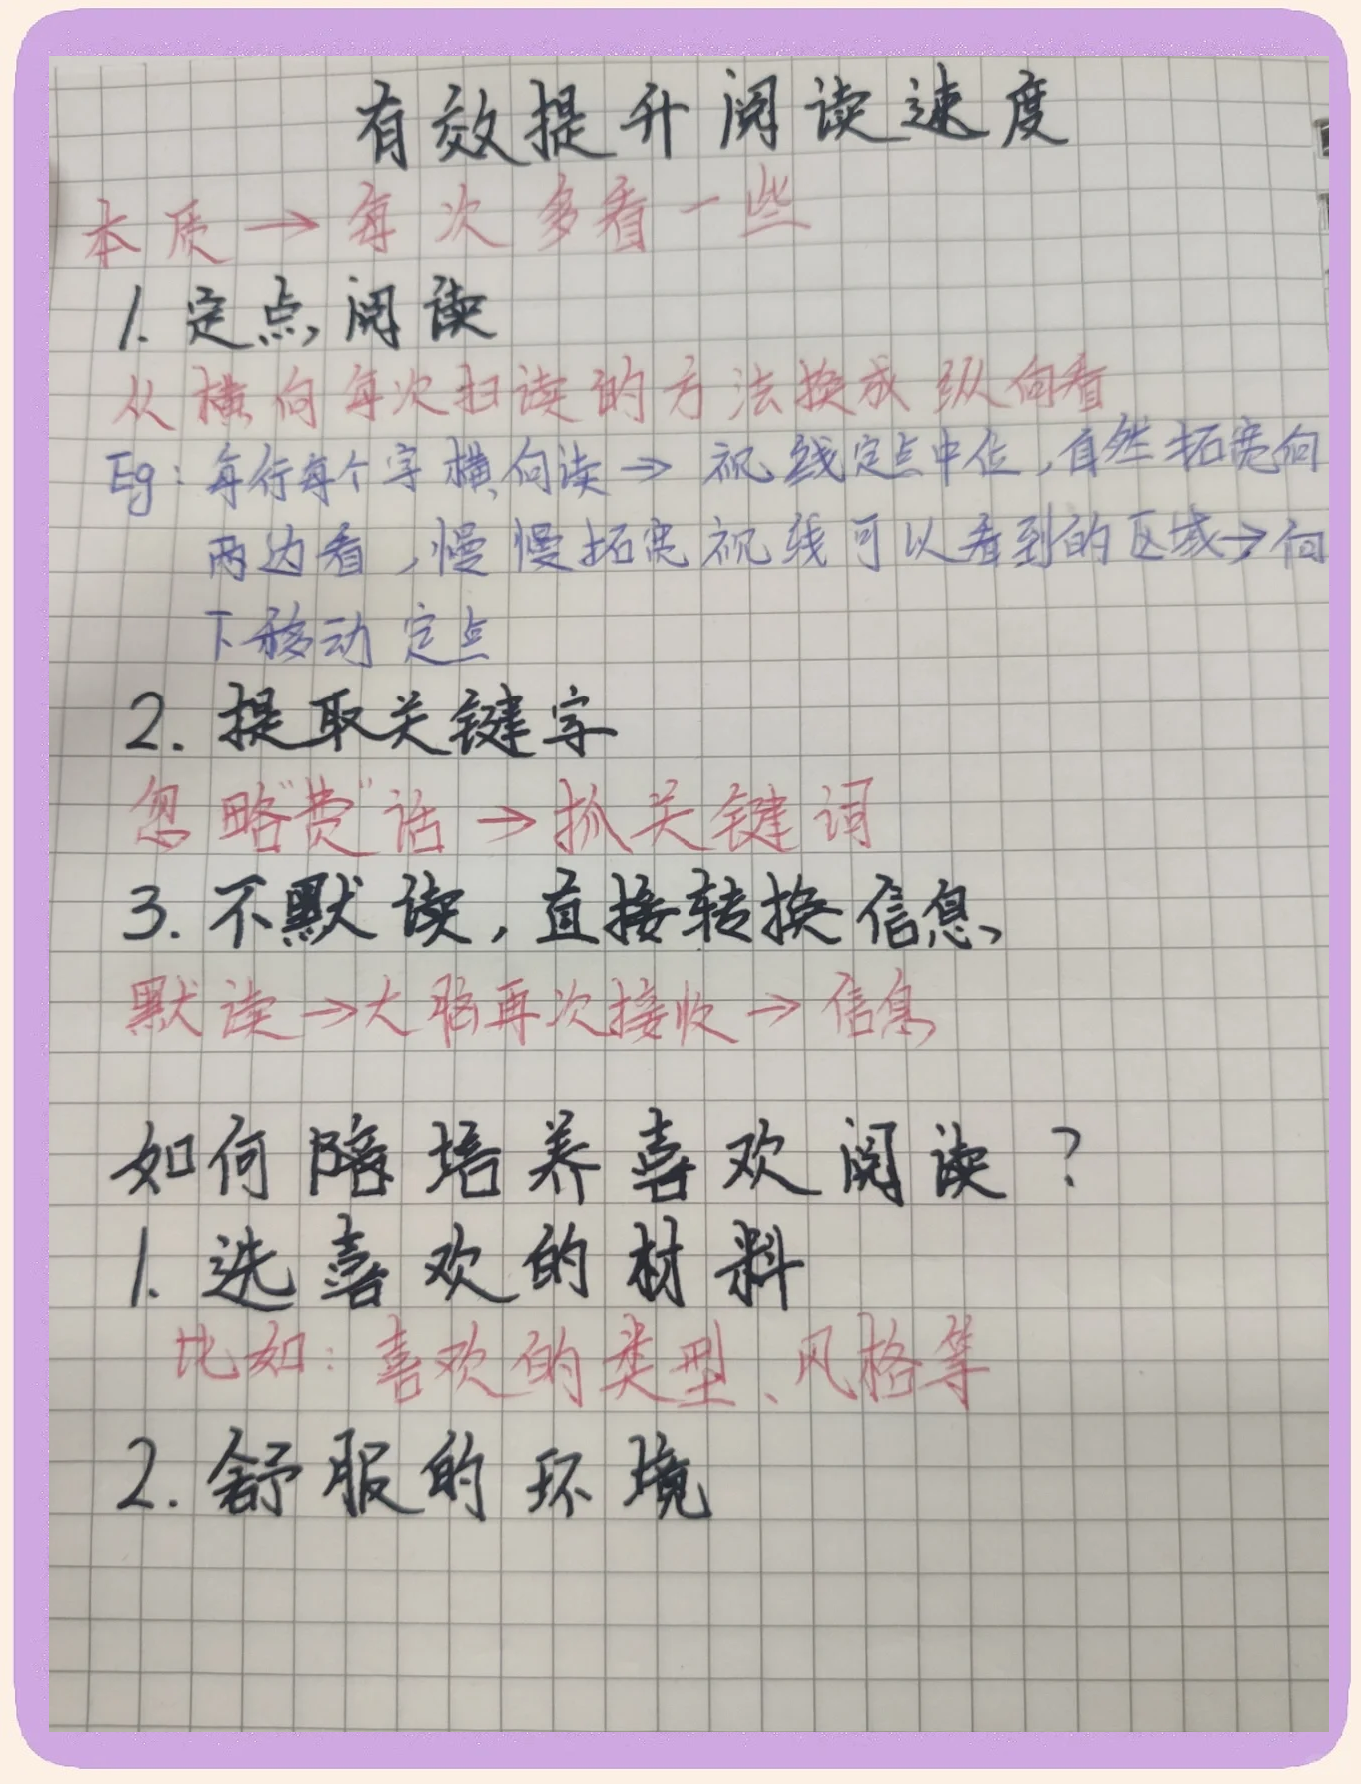 有效提升阅读速度
本质→每次多看一些
1.定点阅读
从横向每次扫读的方法换成纵向看
Eg:每行每个字横向读→视线定点中位,自然拓宽向
两边看,慢慢拓宽视线可以看到的区域→向
下移动定点
2.提取关键字
忽略"费"话→抓关键词
3.不默读,直接转换信息
默读→大脑再次接收→信息
如何陪培养喜欢阅读?
1.选喜欢的材料
比如:喜欢的类型、风格等
2.舒服的环境